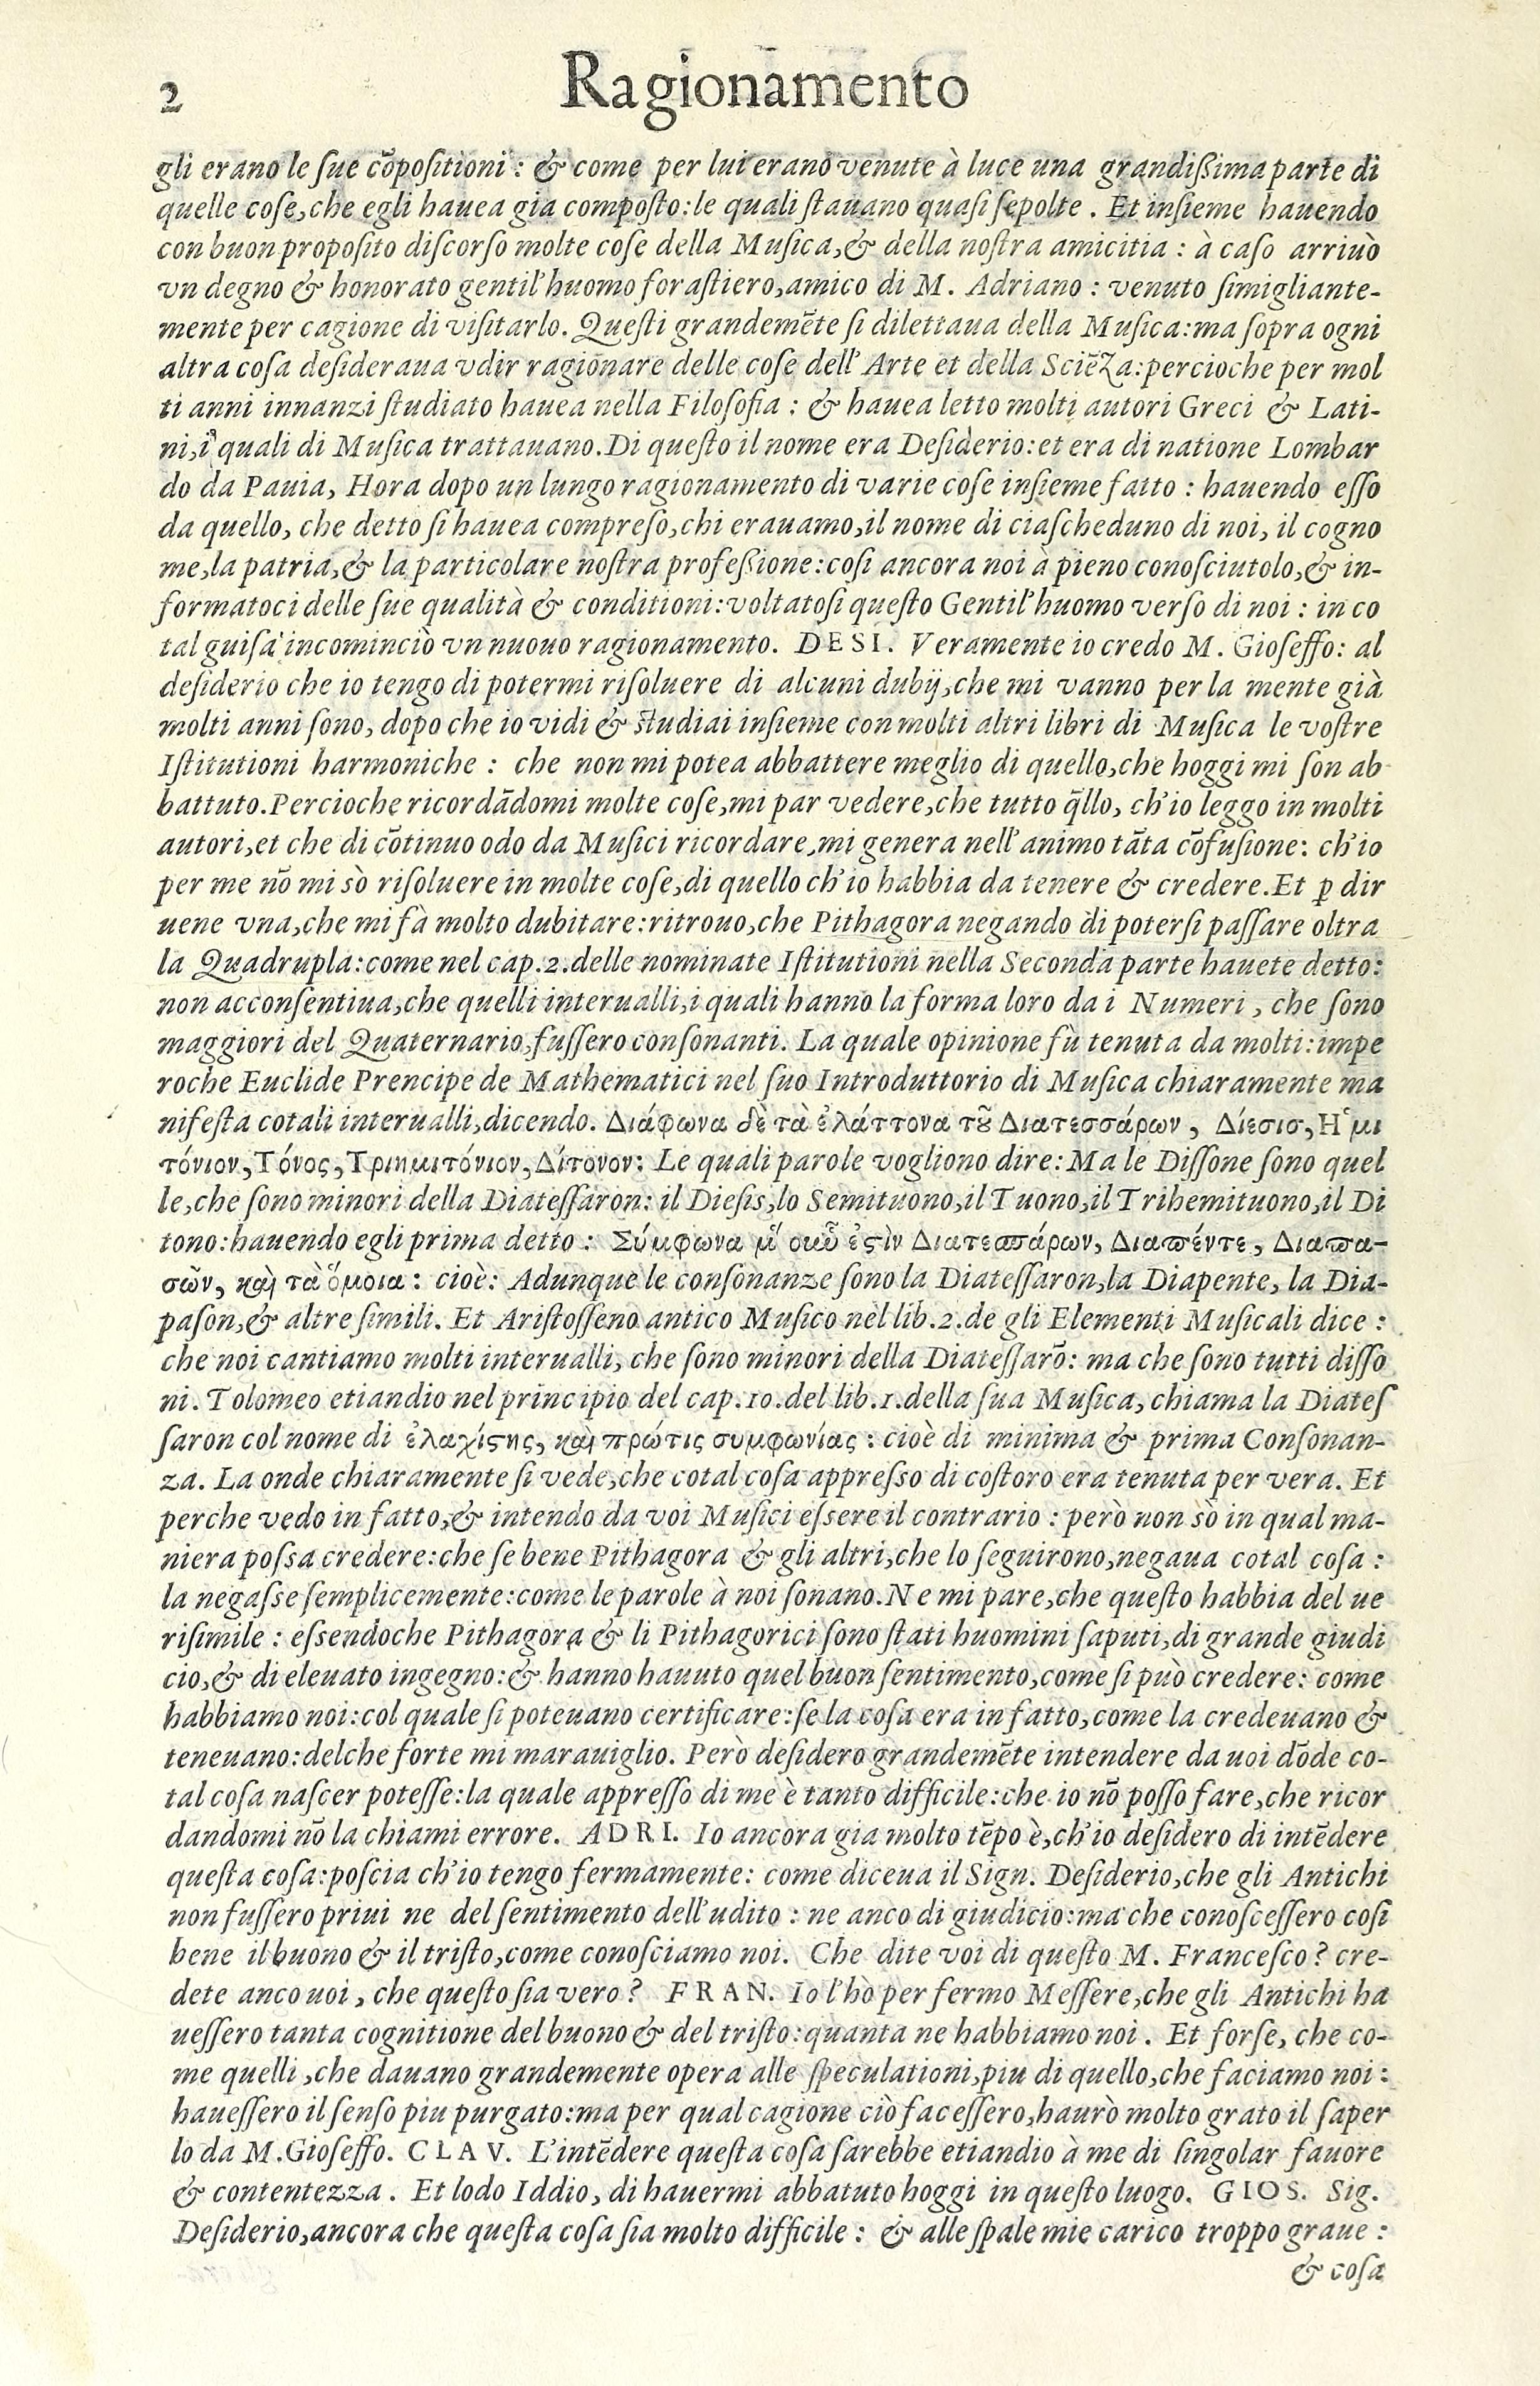 2 Ragionamento
gli erano le ſue cõpoſitioni: & come per lui erano venute à luce una grandiſsima parte di
quelle coſe, che egli hauea gia compoſto: le quali ſtauano quaſi ſepolte. Et inſieme hauendo
con buon propoſito diſcorſo molte coſe della Muſica, & della noſtra amicitia: à caſo arriuò
vn degno & honorato gentil'huomo foraſtiero, amico di M. Adriano: venuto ſimigliante-
mente per cagione di viſitarlo. Queſti grandemẽte ſi dilettaua della Muſica: ma ſopra ogni
altra coſa deſideraua vdir ragionare delle coſe dell'Arte et della Sciẽza: percioche per mol
ti anni innanzi ſtudiato hauea nella Filoſofia: & hauea letto molti autori Greci & Lati-
ni, i quali di Muſica trattauano. Di queſto il nome era Deſiderio: et era di natione Lombar
do da Pauia, Hora dopo un lungo ragionamento di varie coſe inſieme fatto: hauendo eſſo
da quello, che detto ſi hauea compreſo, chi erauamo, il nome di ciaſcheduno di noi, il cogno
me, la patria, & la particolare noſtra profeſsione: coſi ancora noi à pieno conoſciutolo, & in-
formatoci delle ſue qualità & conditioni: voltatoſi queſto Gentil'huomo verſo di noi: in co
tal guiſa incominciò vn nuouo ragionamento. DESI. Veramente io credo M. Gioſeffo: al
deſiderio che io tengo di potermi riſoluere di alcuni dubij, che mi vanno per la mente già
molti anni ſono, dopo che io vidi & ſtudiai inſieme con molti altri libri di Muſica le voſtre
Iſtitutioni harmoniche: che non mi potea abbattere meglio di quello, che hoggi mi ſon ab
battuto. Percioche ricordãdomi molte coſe, mi par vedere, che tutto q̃llo, ch'io leggo in molti
autori, et che di cõtinuo odo da Muſici ricordare, mi genera nell'animo tãta cõfuſione: ch'io
per me nõ mi sò riſoluere in molte coſe, di quello ch'io habbia da tenere & credere. Et ꝑ dir
uene vna, che mi fà molto dubitare: ritrouo, che Pithagora negando di poterſi paſſare oltra
la Quadrupla: come nel cap. 2. delle nominate Iſtitutioni nella Seconda parte hauete detto:
non acconſentiua, che quelli interualli, i quali hanno la forma loro da i Numeri, che ſono
maggiori del Quaternario, fuſſero conſonanti. La quale opinione fù tenuta da molti: impe
roche Euclide Prencipe de Mathematici nel ſuo Introduttorio di Muſica chiaramente ma
nifeſta cotali interualli, dicendo. Διάφωνα δὲ τὰ ἐλάττονα τȣ͂ Διατεσσάρων, Δίεσισ, Ἡμι
τόνιον, Τόνος, Τριημιτόνιον, Δίτονον: Le quali parole vogliono dire: Ma le Diſſone ſono quel
le, che ſono minori della Diateſſaron: il Dieſis, lo Semituono, il Tuono, il Trihemituono, il Di
tono: hauendo egli prima detto: Σύμφωνα μ̓ ȣ̓͂ν ἐϛὶν Διατεσσάρων, Διαπέντε, Διαπα-
σῶν, καὶ τὰ ὅμοια: cioè: Adunque le conſonanze ſono la Diateſſaron, la Diapente, la Dia-
paſon, & altre ſimili. Et Ariſtoſſeno antico Muſico nel lib. 2. de gli Elementi Muſicali dice:
che noi cantiamo molti interualli, che ſono minori della Diateſſarõ: ma che ſono tutti diſſo
ni. Tolomeo etiandio nel principio del cap. 10. del lib. 1. della ſua Muſica, chiama la Diateſ
ſaron col nome di ἐλαχίϛης, καὶ πρώτις συμφωνίας: cioè di minima & prima Conſonan-
za. La onde chiaramente ſi vede, che cotal coſa appreſſo di coſtoro era tenuta per vera. Et
perche vedo in fatto, & intendo da voi Muſici eſſere il contrario: però non sò in qual ma-
niera poſſa credere: che ſe bene Pithagora & gli altri, che lo ſeguirono, negaua cotal coſa:
la negaſſe ſemplicemente: come le parole à noi ſonano. Ne mi pare, che queſto habbia del ue
riſimile: eſſendoche Pithagora & li Pithagorici ſono ſtati huomini ſaputi, di grande giudi
cio, & di eleuato ingegno: & hanno hauuto quel buon ſentimento, come ſi può credere: come
habbiamo noi: col quale ſi poteuano certificare: ſe la coſa era in fatto, come la credeuano &
teneuano: delche forte mi marauiglio. Però deſidero grandemẽte intendere da uoi dõde co-
tal coſa naſcer poteſſe: la quale appreſſo di me è tanto difficile: che io nõ poſſo fare, che ricor
dandomi nõ la chiami errore. ADRI. Io ancora gia molto tẽpo è, ch'io deſidero di intẽdere
queſta coſa: poſcia ch'io tengo fermamente: come diceua il Sign. Deſiderio, che gli Antichi
non fuſſero priui ne del ſentimento dell'udito: ne anco di giudicio: ma che conoſceſſero coſi
bene il buono & il triſto, come conoſciamo noi. Che dite voi di queſto M. Franceſco? cre-
dete anco uoi, che queſto ſia vero? FRAN. Io l'hò per fermo Meſſere, che gli Antichi ha
ueſſero tanta cognitione del buono & del triſto: quanta ne habbiamo noi. Et forſe, che co-
me quelli, che dauano grandemente opera alle ſpeculationi, piu di quello, che faciamo noi:
haueſſero il ſenſo piu purgato: ma per qual cagione ciò faceſſero, haurò molto grato il ſaper
lo da M. Gioſeffo. CLAV. L'intẽdere queſta coſa ſarebbe etiandio à me di ſingolar fauore
& contentezza. Et lodo Iddio, di hauermi abbatuto hoggi in queſto luogo. GIOS. Sig.
Deſiderio, ancora che queſta coſa ſia molto difficile: & alle ſpale mie carico troppo graue:
& coſa